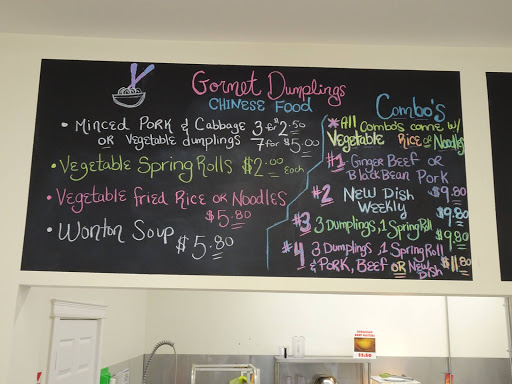 Gormet Dumplings
CHINESE FOOD
• Minced Pork & Cabbage 3 for $2.50
or Vegetable dumplings 7 for $5.00
• Vegetable Spring Rolls $2.00 Each
• Vegetable Fried Rice or Noodles
$5.80
• Wonton Soup $5.80
Combo's
* All Combo's come w/
Vegetable Rice or Noodles
#1 - Ginger Beef or
Black Bean Pork $9.80
#2 New Dish
Weekly $9.80
#3 3 Dumplings, 1 Spring Roll $9.80
#4 3 Dumplings, 1 Spring Roll
& Pork, Beef or New Dish $11.80